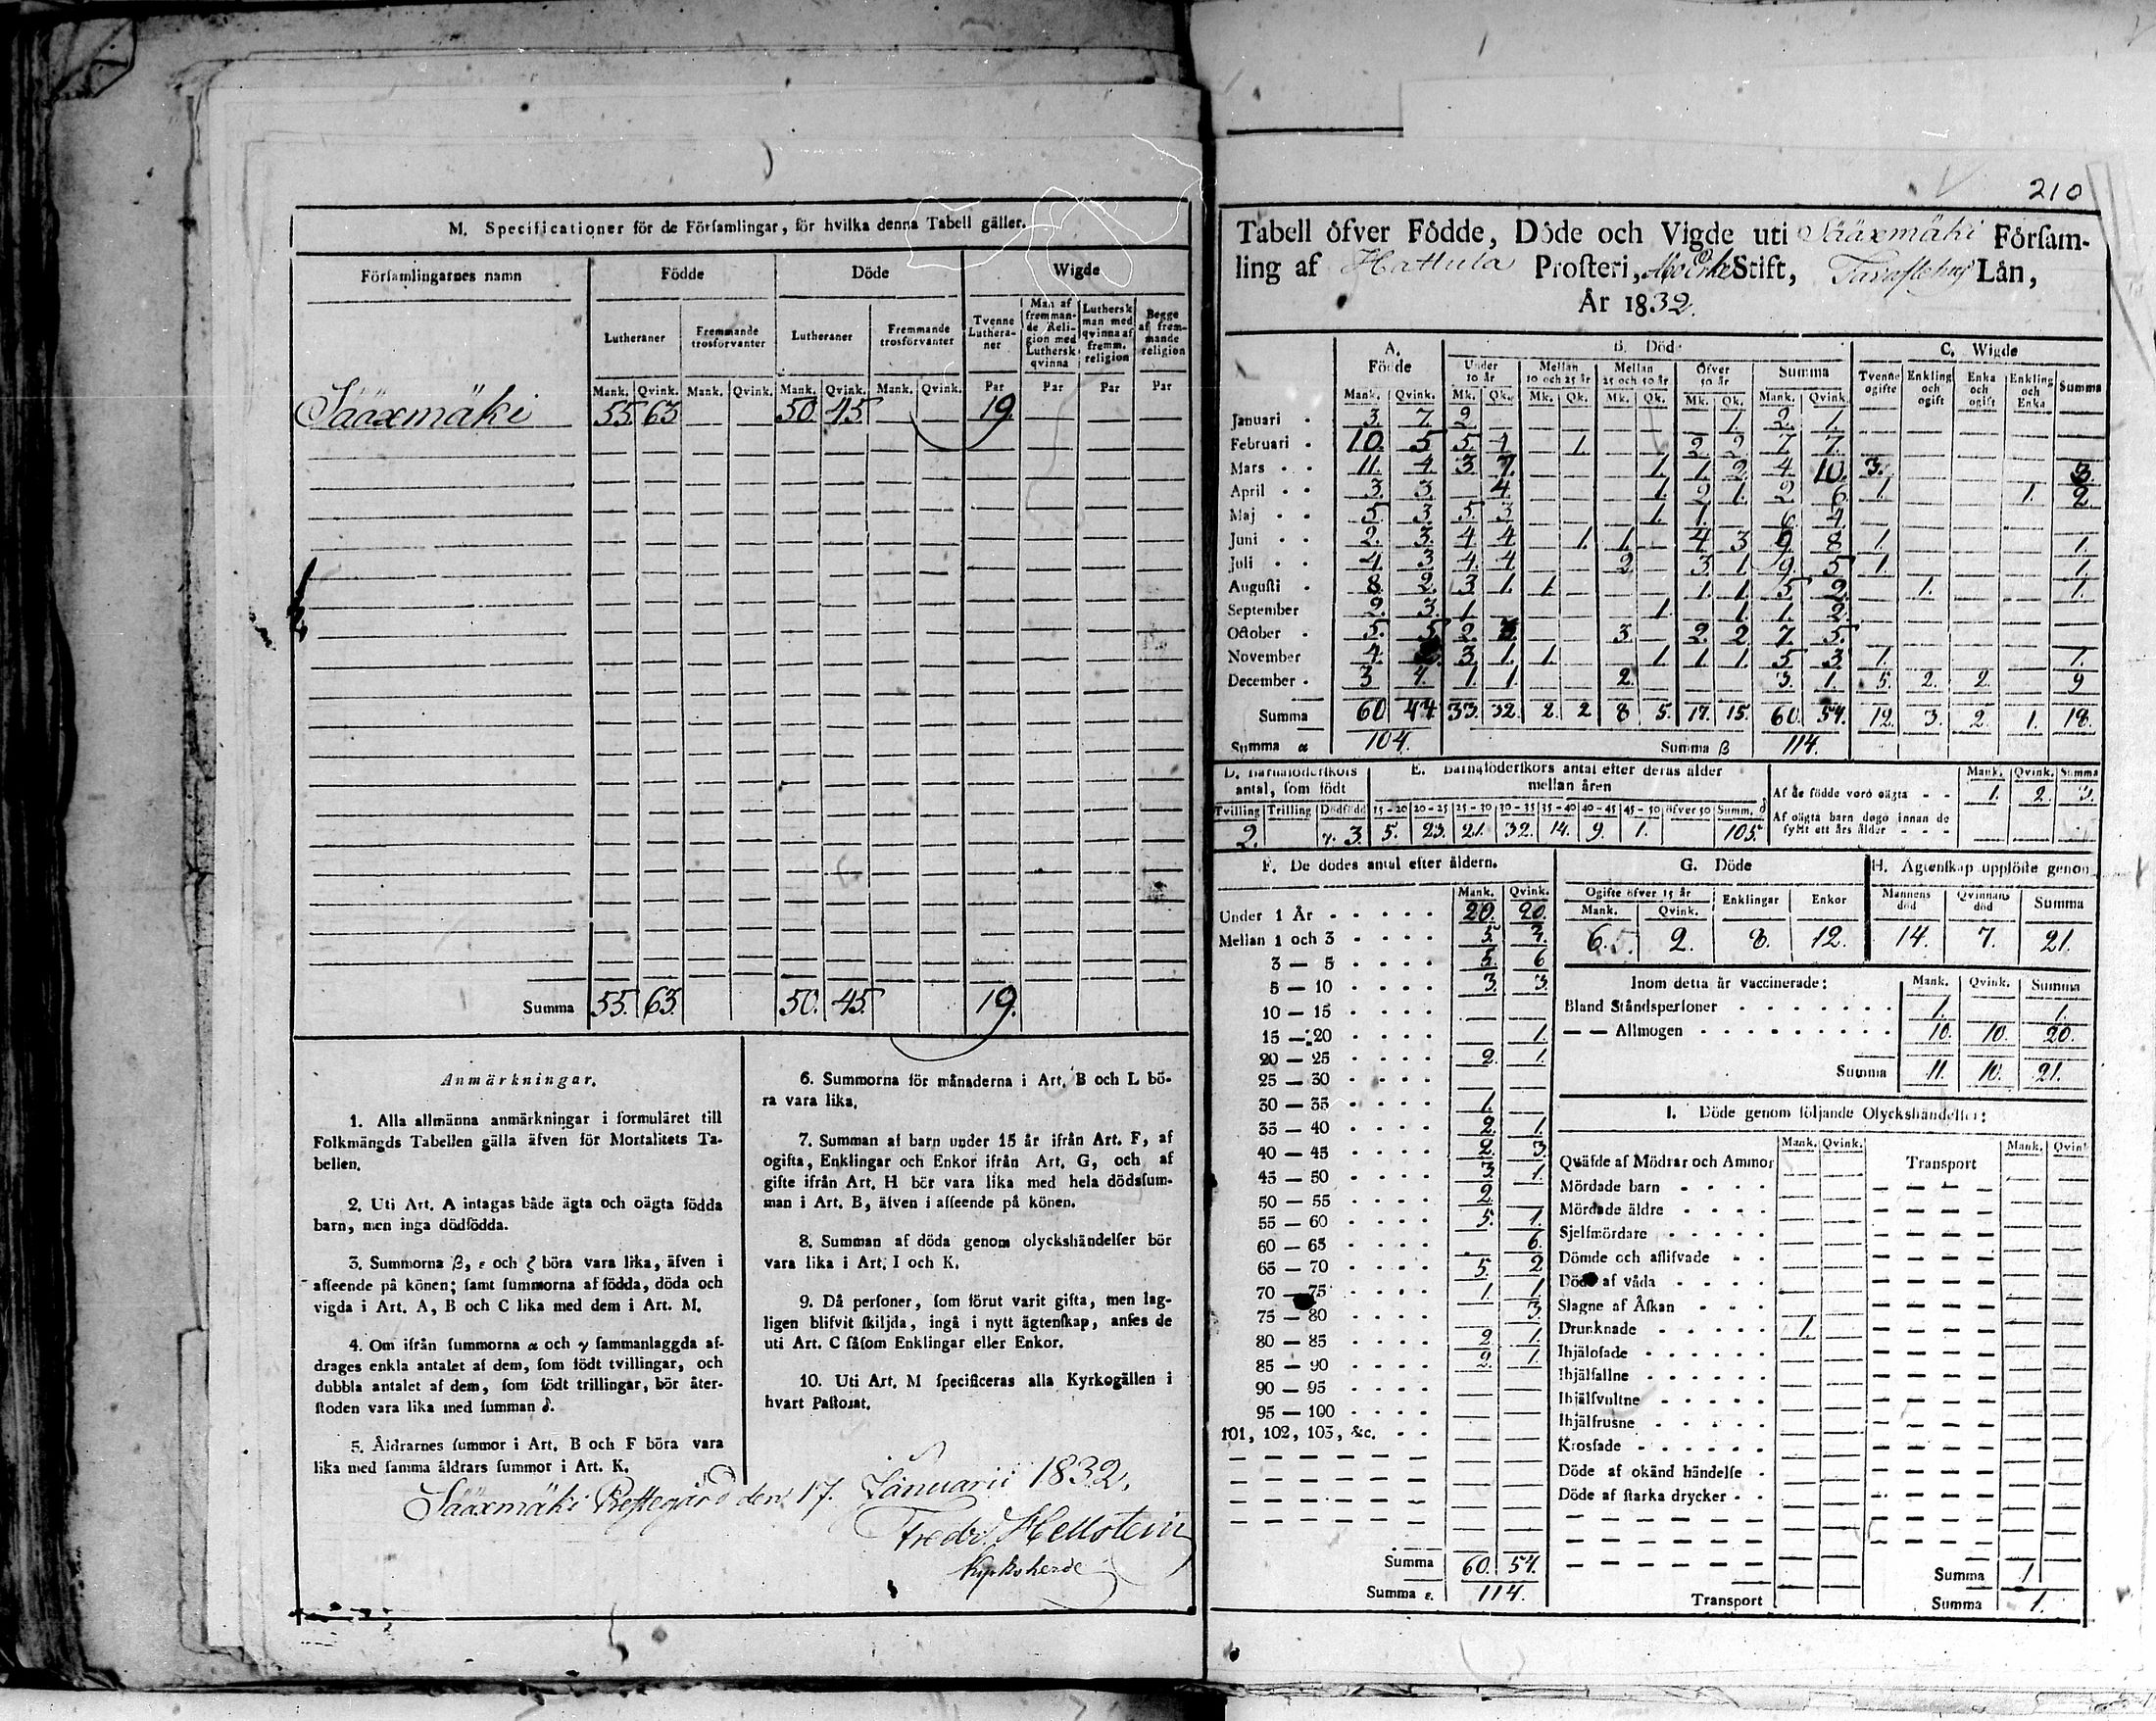 M. Specificationer för de Församlingar, för hvilka denna Tabell gäller.
Församlingarnes namn Födde Döde Wigde
Lutheraner Fremmande trosförvanter Lutheraner Fremmande trosförvanter Tvenne Lutheraner Man af fremmande Religion med Luthersk qvinna Luthersk man med qvinna af fremm. religion Begge af fremmande religion
Mank. Qvink. Mank. Qvink. Mank. Qvink. Mank. Qvink. Par Par Par Par
Sääxmäki 55. 63 50. 45. 19.
Summa 55. 63. 50. 45. 19.
Anmärkningar.
1. Alla allmänna anmärkningar i formuläret till
Folkmängds Tabellen gälla äfven för Mortalitets Ta-
bellen.
2. Uti Art. A intagas både ägta och oägta födda
barn, men inga dödfödda.
3. Summorna β, ε och ζ böra vara lika, äfven i
afseende på könen; samt summorna af födda, döda och
vigda i Art. A, B och C lika med dem i Art. M.
4. Om ifrån summorna α och γ sammanlaggda af-
drages enkla antalet af dem, som födt tvillingar, och
dubbla antalet af dem, som födt trillingar, bör åter-
stoden vara lika med summan δ.
5. Åldrarnes summor i Art. B och F böra vara
lika med samma åldrars summor i Art. K.
6. Summorna för månaderna i Art. B och L bö-
ra vara lika.
7. Summan af barn under 15 år ifrån Art. F, af
ogifta, Enklingar och Enkor ifrån Art. G, och af
gifte ifrån Art. H bör vara lika med hela dödssum-
man i Art. B, äfven i afseende på könen.
8. Summan af döda genom olyckshändelser bör
vara lika i Art. I och K.
9. Då personer, som förut varit gifta, men lag-
ligen blifvit skiljda, ingå i nytt ägtenskap, anses de
uti Art. C såsom Enklingar eller Enkor.
10. Uti Art. M specificeras alla Kyrkogällen i
hvart Pastorat.
Sääxmäki Prestegård den 17. Januarii 1832.
Fredr. Hellstein
Kyrkoherde
210
Tabell öfver Födde, Döde och Vigde uti Sääxmäki Försam-
ling af Hattula Prosteri, Stift, Tavastehus Län,
År 1832.
A. Födde B. Döde C. Wigde
Under 10 år Mellan 10 och 25 år Mellan 25 och 50 år Öfver 50 år Summa Tvenne ogifte Enkling och ogift Enka och ogift Enkling och Enka Summa
Mank. Qvink. Mk. Qk. Mk. Qk. Mk. Qk. Mk. Qk. Mank. Qvink.
Januari 3. 7. 2. 1. 2. 1.
Februari 10. 5 5. 4 1. 2. 2 7 7.
Mars 11. 4. 3 7. 1. 1. 2 4 10. 3. 3.
April 3. 3. 4. 1. 2 1. 2 6. 1. 1. 2.
Maj 5. 3 5. 3 1. 1. 6 4
Juni 2. 3. 4 4 1. 1. 4 3 9 8 1. 1.
Juli 4 3 4. 4 2 3 1 9. 5 1. 1.
Augusti 8 2. 3 1. 1. 1. 1. 5 2 1. 1.
September 2. 3. 1. 1. 1 1. 2.
October 5. 5 2. 3. 2. 2 7. 5.
November 4. 3. 1. 1. 1. 1 1. 5 3. 1. 1.
December 3 4. 1. 1. 2. 3. 1. 5. 2. 2. 9
Summa 60 44. 33. 32. 2. 2 8 5. 17. 15. 60. 54. 12. 3. 2. 1. 18.
Summa α 104. Summa β 114.
D. Barnaföderskors antal, som födt
Tvilling Trilling Dödfödd
2. 3.
E. Barnaföderskors antal efter deras ålder mellan åren
15-20 20-25 25-30 30-35 35-40 40-45 45-50 öfver 50 Summ. δ
5. 23. 21. 32. 14. 9. 1. 105.
Mank. Qvink. Summa
Af de födde voro oägta 1. 2. 3.
Af oägta barn dogo innan de fyllt ett års ålder
F. De dödes antal efter åldern.
Mank. Qvink.
Under 1 År 20. 20.
Mellan 1 och 3 5. 3.
3 — 5 5. 6
5 — 10 3. 3.
10 — 15
15 — 20 1.
20 — 25 2. 1.
25 — 30
30 — 35 1.
35 — 40 2. 1.
40 — 45 2. 3
45 — 50 3. 1.
50 — 55 2.
55 — 60 5. 1.
60 — 65 6.
65 — 70 5. 2
70 — 75 1. 1.
75 — 80 3.
80 — 85 2 1.
85 — 90 2. 1.
90 — 95
95 — 100
101, 102, 103, &c.
Summa 60. 54.
Summa ε. 114.
G. Döde
Ogifte öfver 15 år Enklingar Enkor
Mank. Qvink.
6. 2. 8. 12.
H. Ägtenskap upplöste genom
Mannens död Qvinnans död Summa
14. 7. 21.
Inom detta år vaccinerade: Mank. Qvink. Summa
Bland Ståndspersoner 1. 1.
— — Allmogen 10. 10. 20.
Summa 11. 10. 21.
I. Döde genom följande Olyckshändelser:
Mank. Qvink. Mank. Qvink
Qväfde af Mödrar och Ammor Transport
Mördade barn
Mördade äldre
Sjelfmördare
Dömde och aflifvade
Döde af våda
Slagne af Åskan
Drunknade 1.
Ihjälosade
Ihjälfallne
Ihjälsvultne
Ihjälfrusne
Krossade
Döde af okänd händelse
Döde af starka drycker
Summa 1
Transport Summa 1.